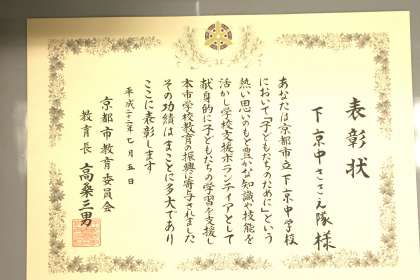 表彰状
下京中ささえ隊 様
あなたは京都市立下京中学校
において「子どもたちのために」という
熱い思いのもと豊かな知識や技能を
活かし学校支援ボランティアとして
献身的に子どもたちの学習を支援し
本市学校教育の振興に寄与されました
その功績はまことに多大であり
ここに表彰します
平成二十二年七月五日
京都市教育委員会
教育長 高桑三男